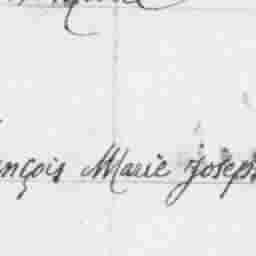 nçois Marie Joseph